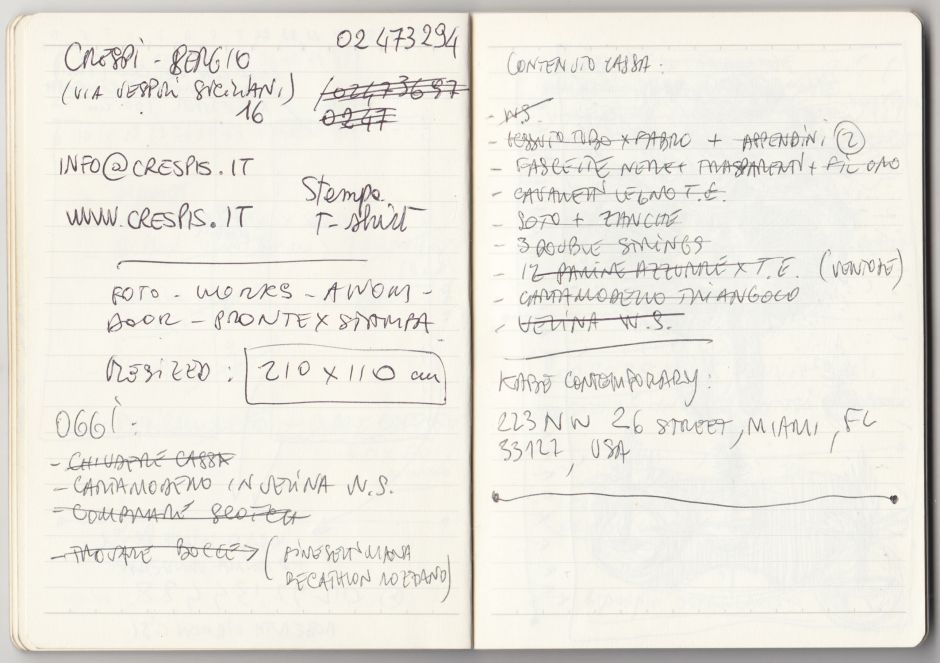 02 473294
CRESPI - SERGIO
(VIA VESPRI SICILIANI)
16
02473697
0247
INFO@CRESPIS.IT
Stampa
WWW.CRESPIS.IT
T-shirt
FOTO - WORKS - 
DOOR - PRONTE X STAMPA
RESIZED : 210 X 110 cm
OGGI :
- CHIUDERE CASSA
- CARTAMODELLO IN VELINA W.S.
- COMPRARE SCOTCH
- TROVARE BOCCE → (FINESETTIMANA
DECATHLON ROZZANO)
CONTENUTO CASSA :
- W.S.
- TESSUTO TUBO X FABRO + APPENDINI 2
- FASCETTE NERE + TRASPARENTI + FIL
- CAVALLETTI LEGNO T.E.
- + 
- 3 DOUBLE STRINGS
- 12 PALLINE AZZURRE X T.E. (VENTOSE)
- CARTAMODELLO TRIANGOLO
- VELINA W.S.
KABE CONTEMPORARY :
223 NW 26 STREET, MIAMI, FL
33127, USA